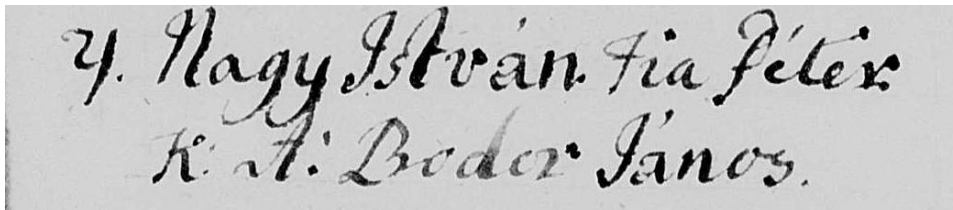 4. Nagy István. Fia Péter
K: A: Bodor János.